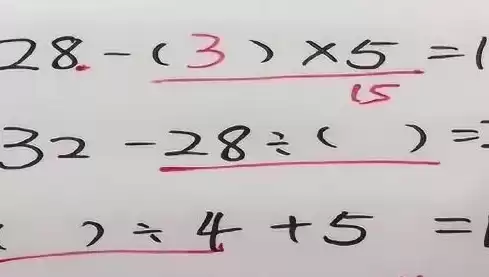 28 - ( 3 ) × 5 = 1
15
32 - 28 ÷ ( ) =
( ) ÷ 4 + 5 =